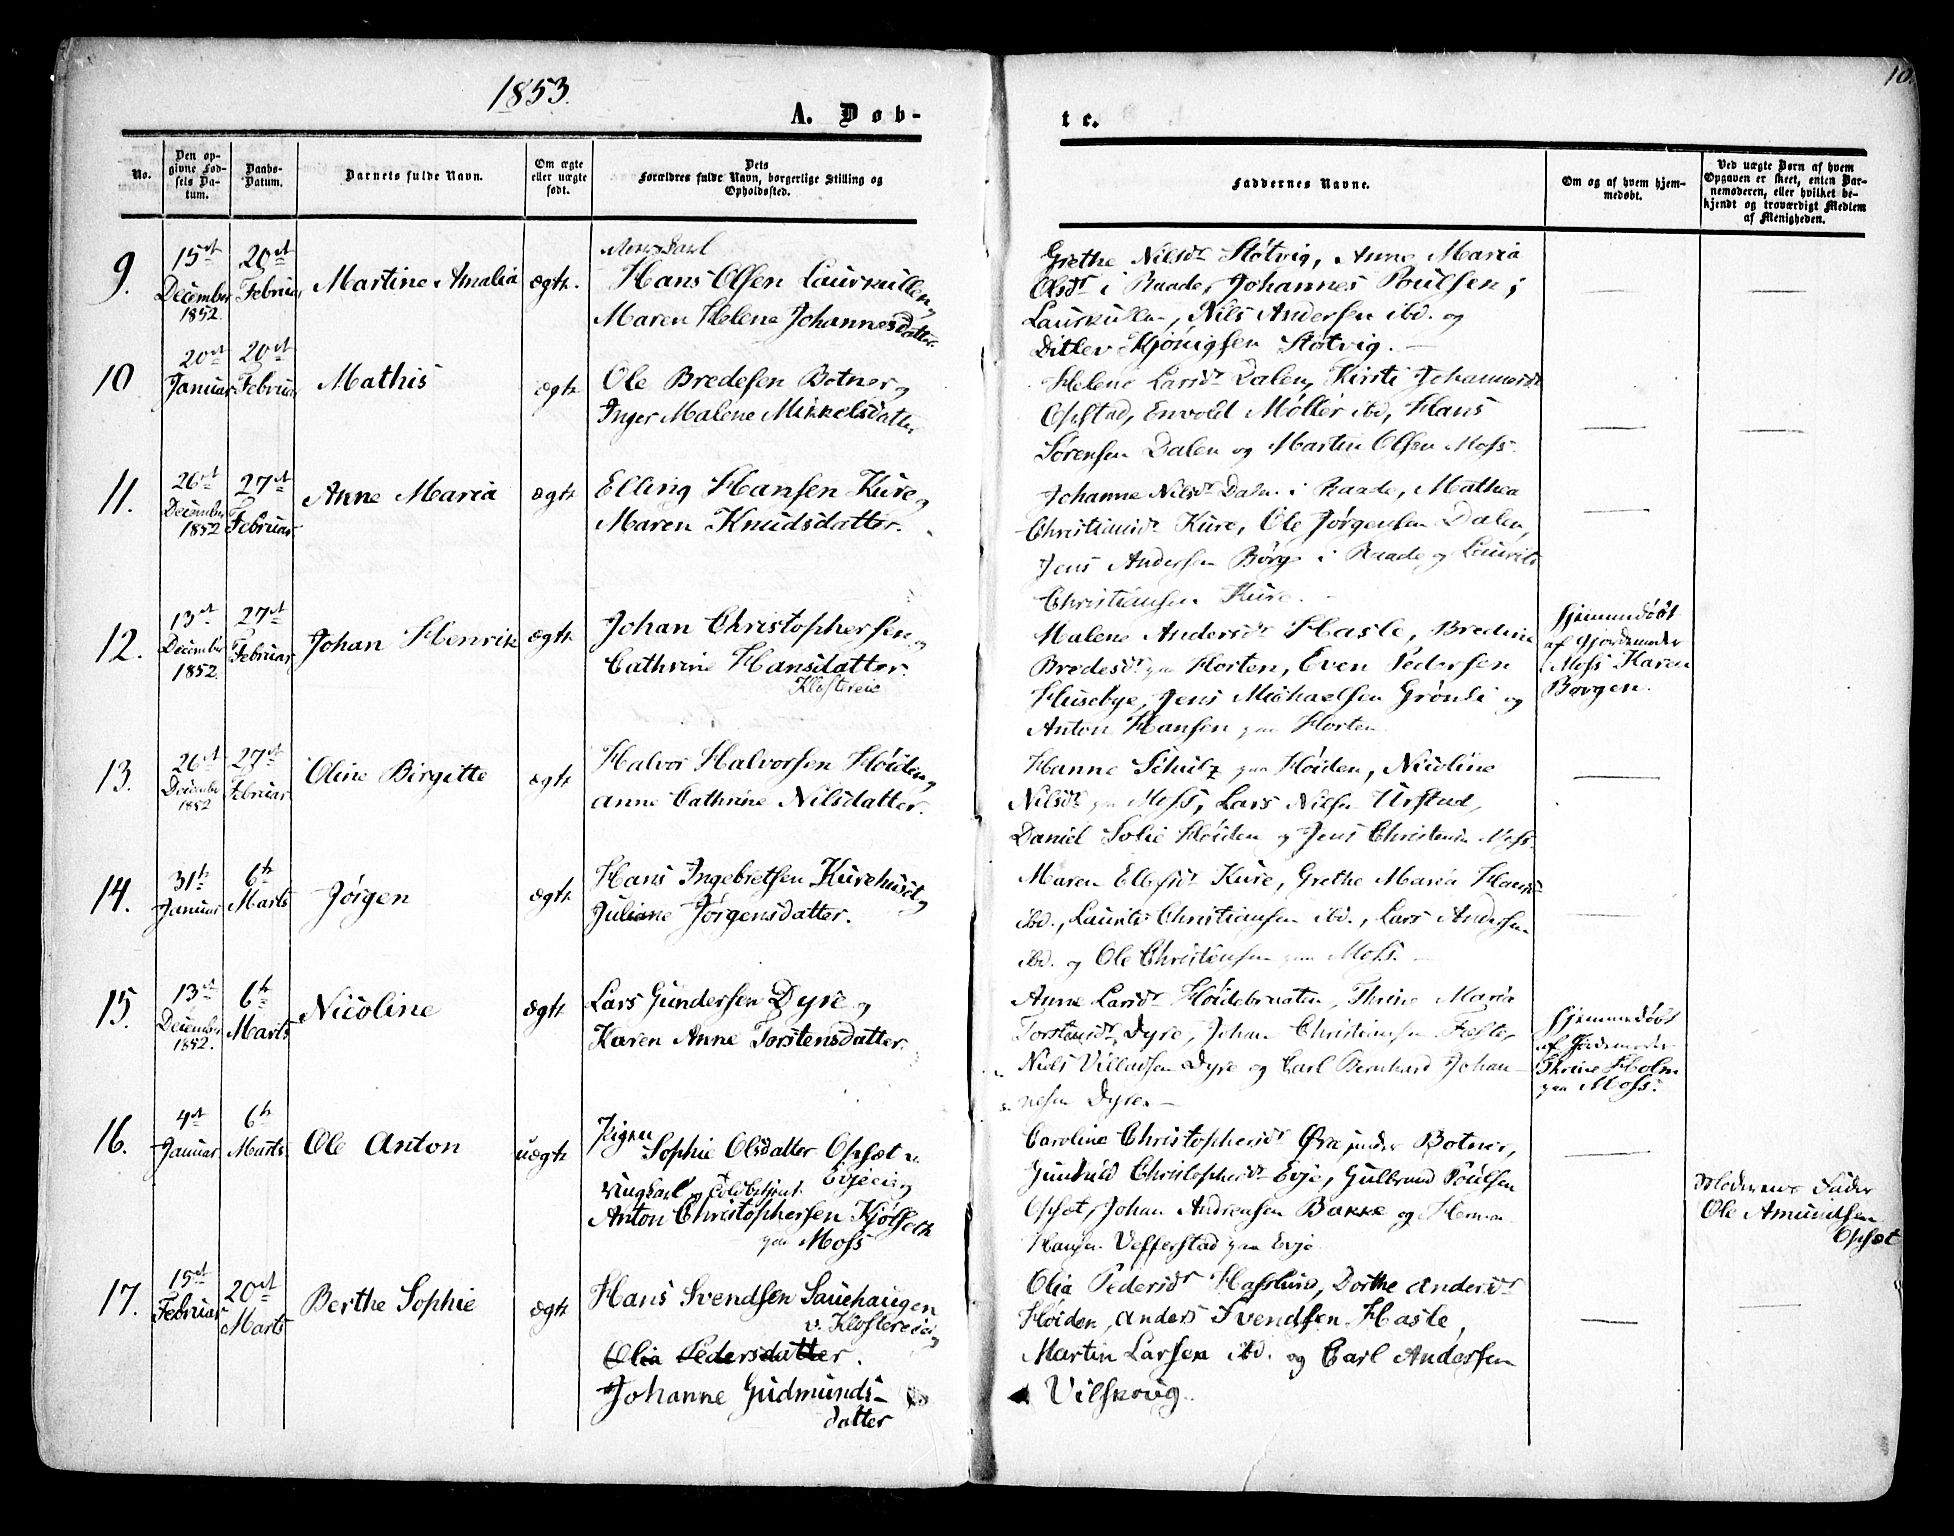 1853.
10
A. Døb-
te.
No.
Den op-
givne Fød-
sels Da-
tum.
Daabs-
Datum.
Barnets fulde Navn.
Om ægte
eller uægte
født.
Dets
Forældres fulde Navn, borgerlige Stilling og
Opholdssted.
Faddernes Navne.
Om og af hvem hjem-
medøbt.
Ved uægte Børn af hvem
Opgaven er skeet, enten Bar-
nemoderen, eller hvilket be-
kjendt og troværdigt Medlem
af Menigheden.
9.
15de
December
1852.
20de
Februar
Martine Amalia
ægte.
Hans Olsen Laurkullen,
Maren Helene Johannesdatter.
Grethe Nilsdr Støtvig, Anne Maria
Olsdr i Raade, Johannes Poulsen,
Laurkullen, Nils Andersen ibd. og
Ditlev Kjønigsen Støtvig.
10
20de
Januar
20de
Februar
Mathis
ægte
Ole Bredesen Botner og
Inger Malene Mikkelsdatter
Helene Larsdr Dalen, Kirsti Johannesdr
Opstad, Envold Møller ibd, Hans
Sørensen Dalen og Martin Olsen Moss.
11.
26de
December
1852
27de
Februar
Anne Maria
ægte
Elling Hansen Kure og
Maren Knudsdatter.
Johanne Nilsdr Dalen i Raade, Mathea
Christiansdr Kure, Ole Jørgensen Dalen,
Jens Andersen Børge i Raade og Laurits
Christiansen Kure.
12.
13de
December
1852.
27de
Februar
Johan Henrik
ægte
Johan Christophersen og
Cathrine Hansdatter.
Klostereie
Malene Andersdr Hasle, Bredine
Bredesdr paa Horten, Even Pedersen
Husebye, Jens Michaelsen Grønli og
Anton Hansen paa Horten
Hjemmedøbt
af Gjordemoder
Moss Karen
Borgen.
13.
26de
December
1852
27de
Februar
Oline Birgitte
ægte
Halvor Halvorsen Høiden,
Anne Cathrine Nilsdatter.
Hanne Schultz paa Høiden, Nicoline
Nilsdr paa Moss, Lars Nilsen Urstad,
Daniel Solie Høiden og Jens Christensen Moss
14.
31te
Januar
6te
Marts
Jørgen
ægte
Hans Ingebretsen Kurehuset og
Juliane Jørgensdatter.
Maren Ellefsdr Kure, Grethe Maria Hansdr
ibd., Laurits Christiansen ibd., Lars Andersen
ibd. og Ole Christensen paa Moss.
15.
13de
December
1852.
6te
Marts
Nicoline
ægte
Lars Gundersen Dyre og
Karen Anne Torstensdatter
Anne Larsdr Høidebraaten, Thrine Maria
Torstensdr Dyre, Johan Christiansen Feste,
Niels Villadsen Dyre og Carl Bernhard Johan-
nesen Dyre.
Hjemmedøbt
af Jordemoder
Thrine Holm
paa Moss.
16.
4de
Januar
6te
Marts
Ole Anton
uægte
Pigen
Sophie Olsdatter Opsæt u.
Evjeeie og
Ungkarl og
Anton Christophersen Kjølseth
paa Moss
Caroline Christophersdr Øra under Botner,
Gunhild Christophersdr Evje, Gulbrand Poulsen
Opsæt, Johan Andreasen Bakke og
Hansen Vefferstad paa Evje
Moderens Fader
Ole Amundsen
Opsæt
17.
15de
Februar
20de
Marts
Berthe Sophie
ægte
Hans Svendsen Sauehaugen
v. Klostereie og
Olia Pedersdatter.
Johanne Gudmunds-
datter
Olia Pedersdr Hasslund, Dorthe Andersdr
Høiden, Anders Svendsen Hasle,
Martin Larsen ibd. og Carl Andersen
Vilskoug.